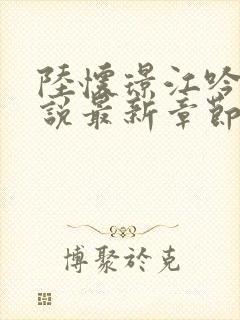 陸懷璟江吟
說最新章節
博聚於克